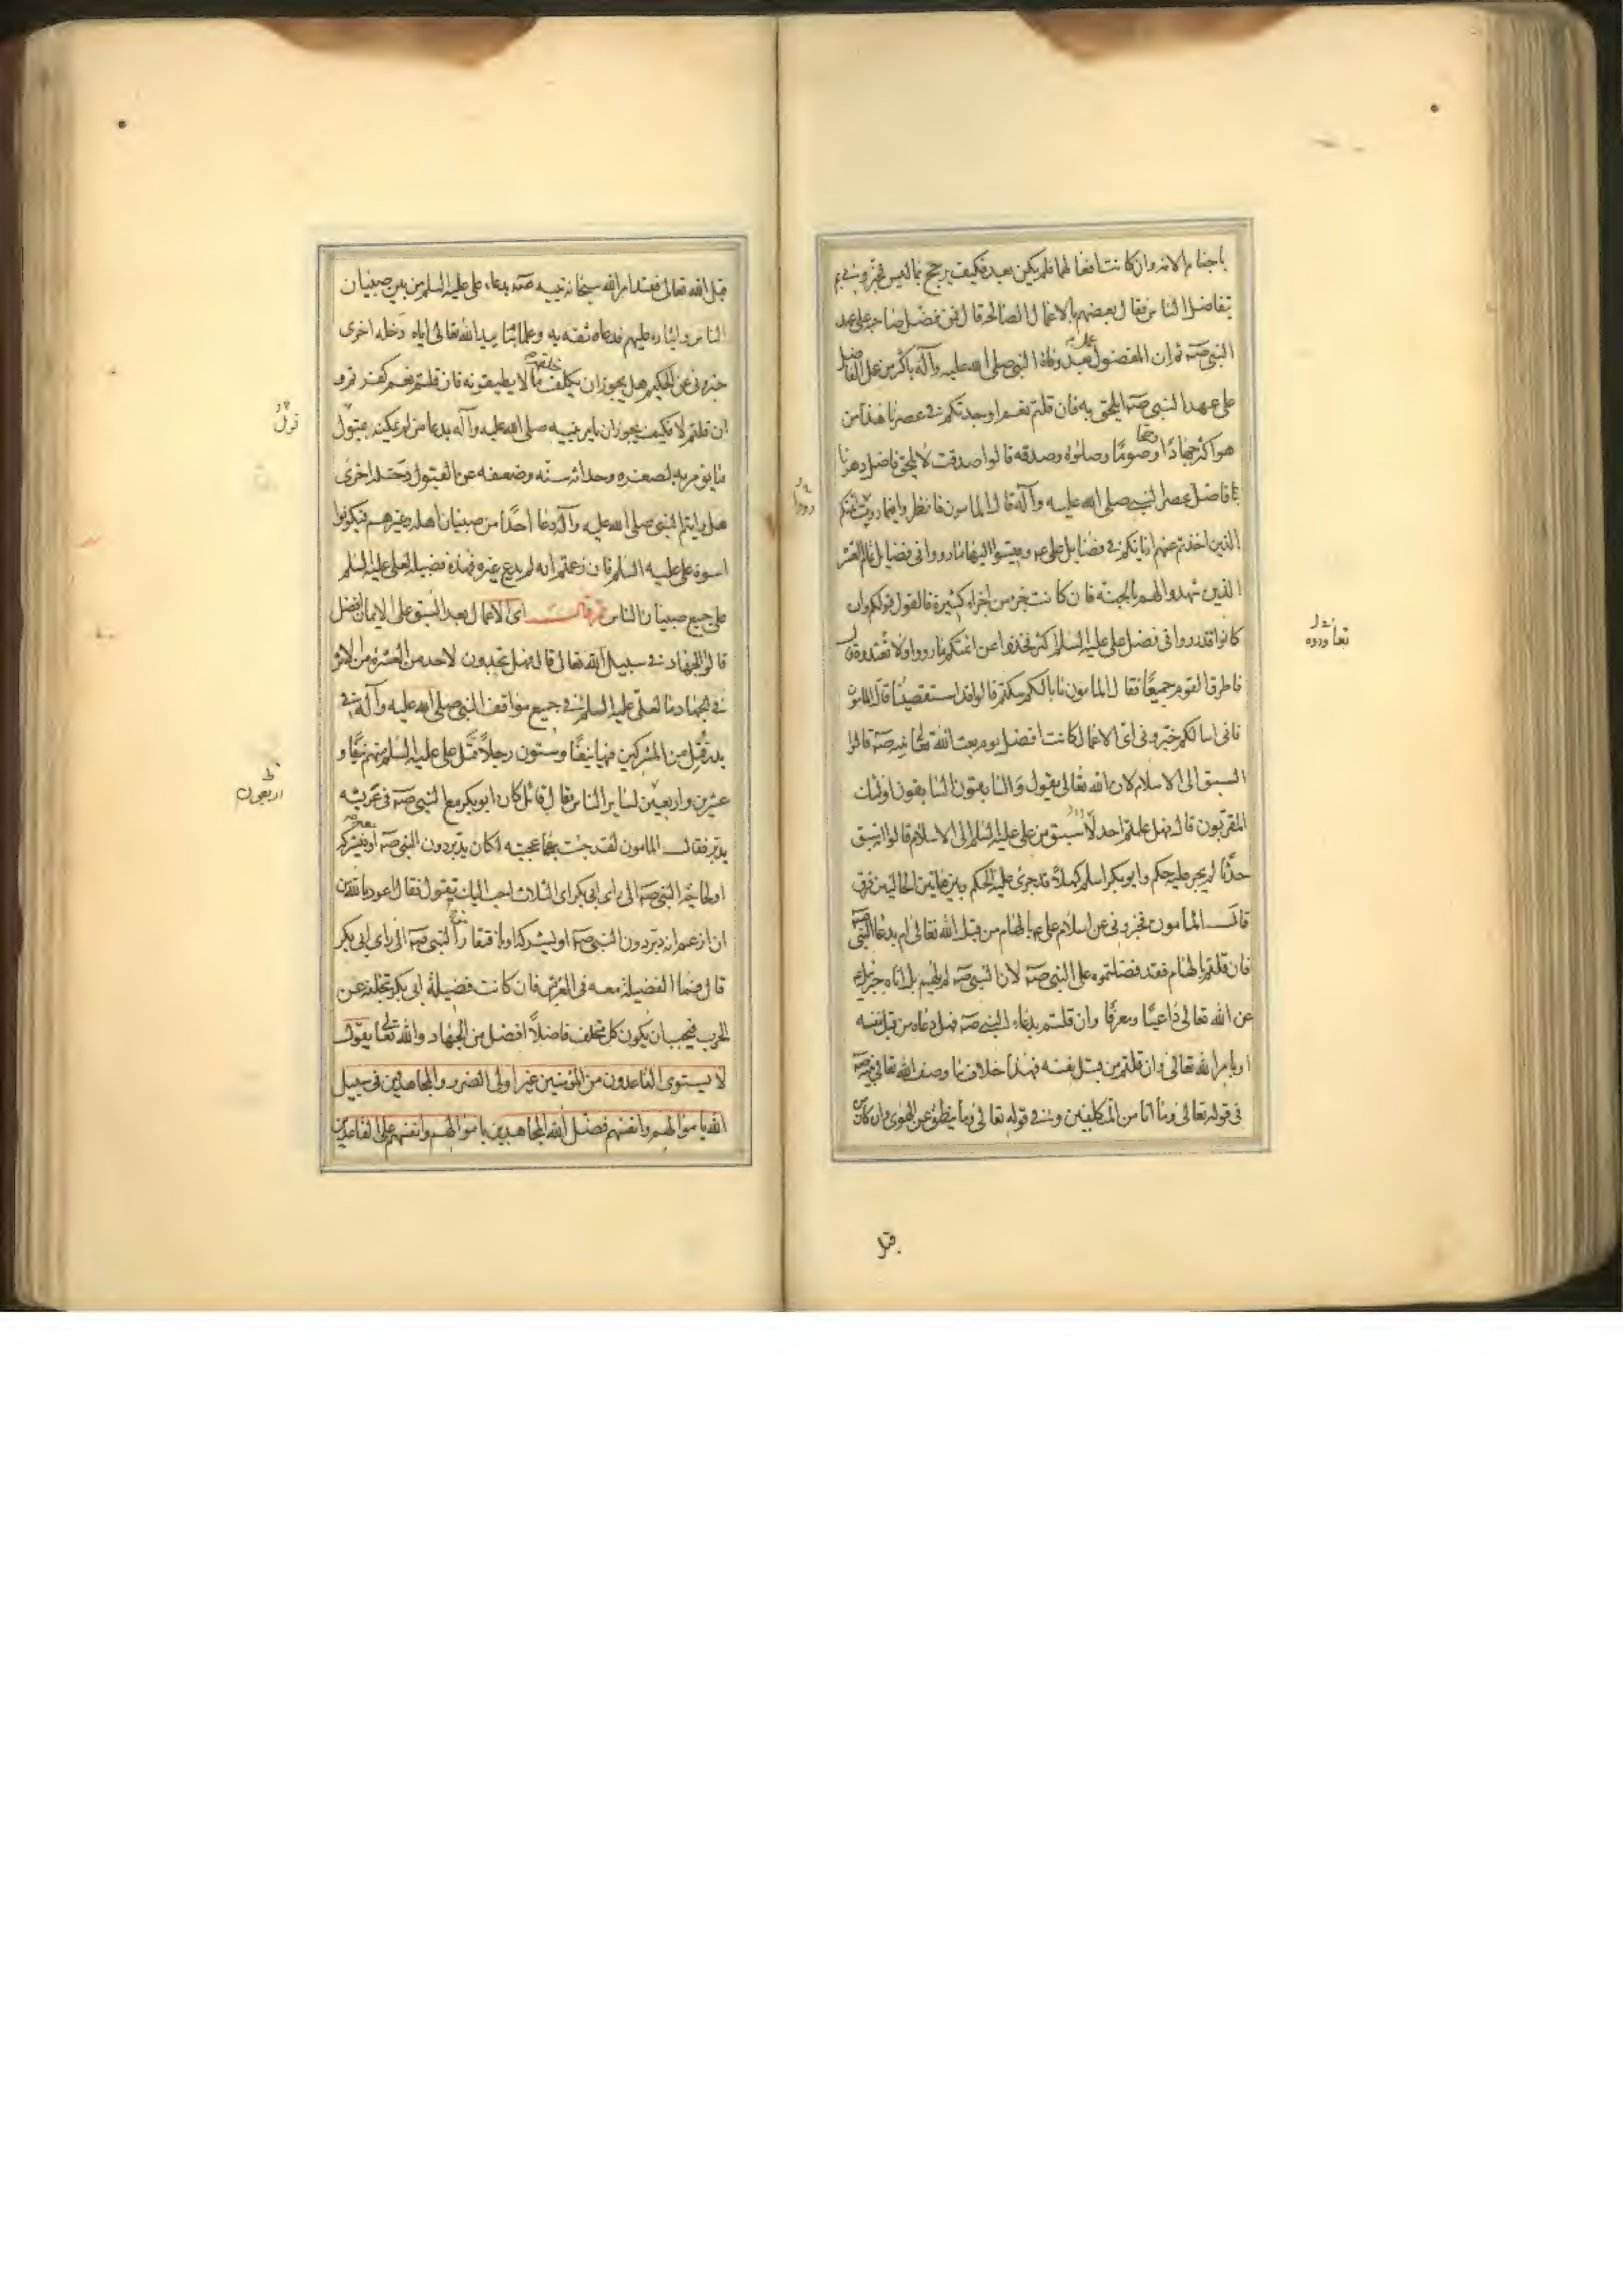 باجناع الامة وان كانت افعالهما فلم يكن بعده فكيف يرجح بما ليس فخبروني بم
يتفاضل الناس فقال بعضهم بالاعمال الصالحة قال فمن فضل صاحبه على عهد
النبي صه ثم ان المفضول عمل بعد وفاة النبي صلى الله عليه وآله باكثر من عمل الفاضل
على عهد النبي صه ايلحق به فان قلتم نعم اوجدتكم في عصرنا هذا من
هو اكثر جهادًا وحجا وصومًا وصلوة وصدقه قالوا صدقت لا يلحق فاضل دهرنا
بفاضل عصر النبي صلى الله عليه وآله قال المامون فانظروا فيما روت ائمتكم
الذين اخذتم عنهم اديانكم في فضايل على عم وقيسوا اليها ما رووا في فضايل تمام العشر
الذين شهدوا لهم بالجنة فان كانت جزء من اجزاء كثيرة فالقول قولكم وان
كانوا قد رووا في فضل على عليه السلم اكثر فخذوا عن ائمتكم ما رووا ولا تعتدوه قال
فاطرق القوم جميعًا فقال المامون ما بالكم سكتم قالوا قد استقصينا قال المامون
فانى اسالكم خبرونى اى الاعمال كانت افضل يوم بعث الله تعالى نبيه صه قالوا
السبق الى الاسلام لان الله تعالى يقول والسابقون السابقون اولئك
المقربون قال فهل علمتم احدا اسبق من على عليه السلم الى الاسلام قالوا انه سبق
حدثًا لم يجر عليه حكم وابو بكر اسلم كهلًا قد جرى عليه الحكم وبين هاتين الحالتين فرق
قال المامون فخبرونى عن اسلام على عم بالهام من قبل الله تعالى ام بدعا النبي صه
فان قلتم بالهام فقد فضلتموه على النبي صه لان النبي صه لم يلهم بل اتاه جبرئيل
عن الله تعالى داعيًا ومعرفًا وان قلتم بدعاء النبي صه فهل دعاه من قبل نفسه
او بامر الله تعالى وان قلتم من قبل نفسه فهذا خلاف ما وصف الله تعالى نبيه صه
فى قوله تعالى وما انا من المتكلفين وفي قوله تعالى وما ينطق عن الهوى وان كان من
قبل
قبل الله تعالى فقد امر الله سبحانه نبيه صه بدعاء على عليه السلم من بين صبيان
الناس وايثاره عليهم فدعاه ثقه به وعلما بتاييد الله تعالى اياه وخلة اخرى
خبرونى عن الحكيم هل يجوز ان يكلف خلقه ما لا يطيقونه فان قلتم نعم كفرتم و
ان قلتم لا فكيف يجوز ان يامر نبيه صلى الله عليه وآله بدعا من لم يمكنه قبول
ما يؤمر به لصغره وحداثه سنه وضعفه عن القبول وخله اخرى
هل رايتم النبي صلى الله عليه وآله دعا احدًا من صبيان اهله وغيرهم فيكونوا
اسوة على عليه السلم فان زعمتم انه لم يدع غيره فهذه فضيلة لعلى عليه السلم
على جميع صبيان الناس ثم قال اى الاعمال بعد السبق على الايمان افضل
قالوا الجهاد في سبيل الله تعالى قال فهل تجدون لاحد من العشرة من الاثر
في الجهاد ما لعلى عليه السلم في جميع مواقف النبي صلى الله عليه وآله في
بدر قتل من المشركين فيها نيفًا وستون رجلًا قتل على عليه السلم منهم نيفًا و
عشرين واربعين لساير الناس فقال قائل كان ابو بكر مع النبي صه فى عريشه
يدبر فقال المامون لقد جئت بها عجيبه اكان يدبر دون النبي صه او معه فيشركه
او لحاجة النبي صه الى راى ابى بكر اى الثلاث احب اليك تقول فقال اعوذ بالله من
ان ازعم انه دبر دون النبي صه او يشركه او بافتقار من النبي صه الى راى ابى بكر
قال فما الفضيلة معه فى العريش فان كانت فضيلة ابى بكر تخلفه عن
الحرب فيجب ان يكون كل متخلف فاضلًا افضل من الجهاد والله تعالى يقول
لا يستوى القاعدون من المؤمنين غير اولى الضرر والمجاهدين فى سبيل
الله باموالهم وانفسهم فضل الله المجاهدين باموالهم وانفسهم على القاعدين
اربعون